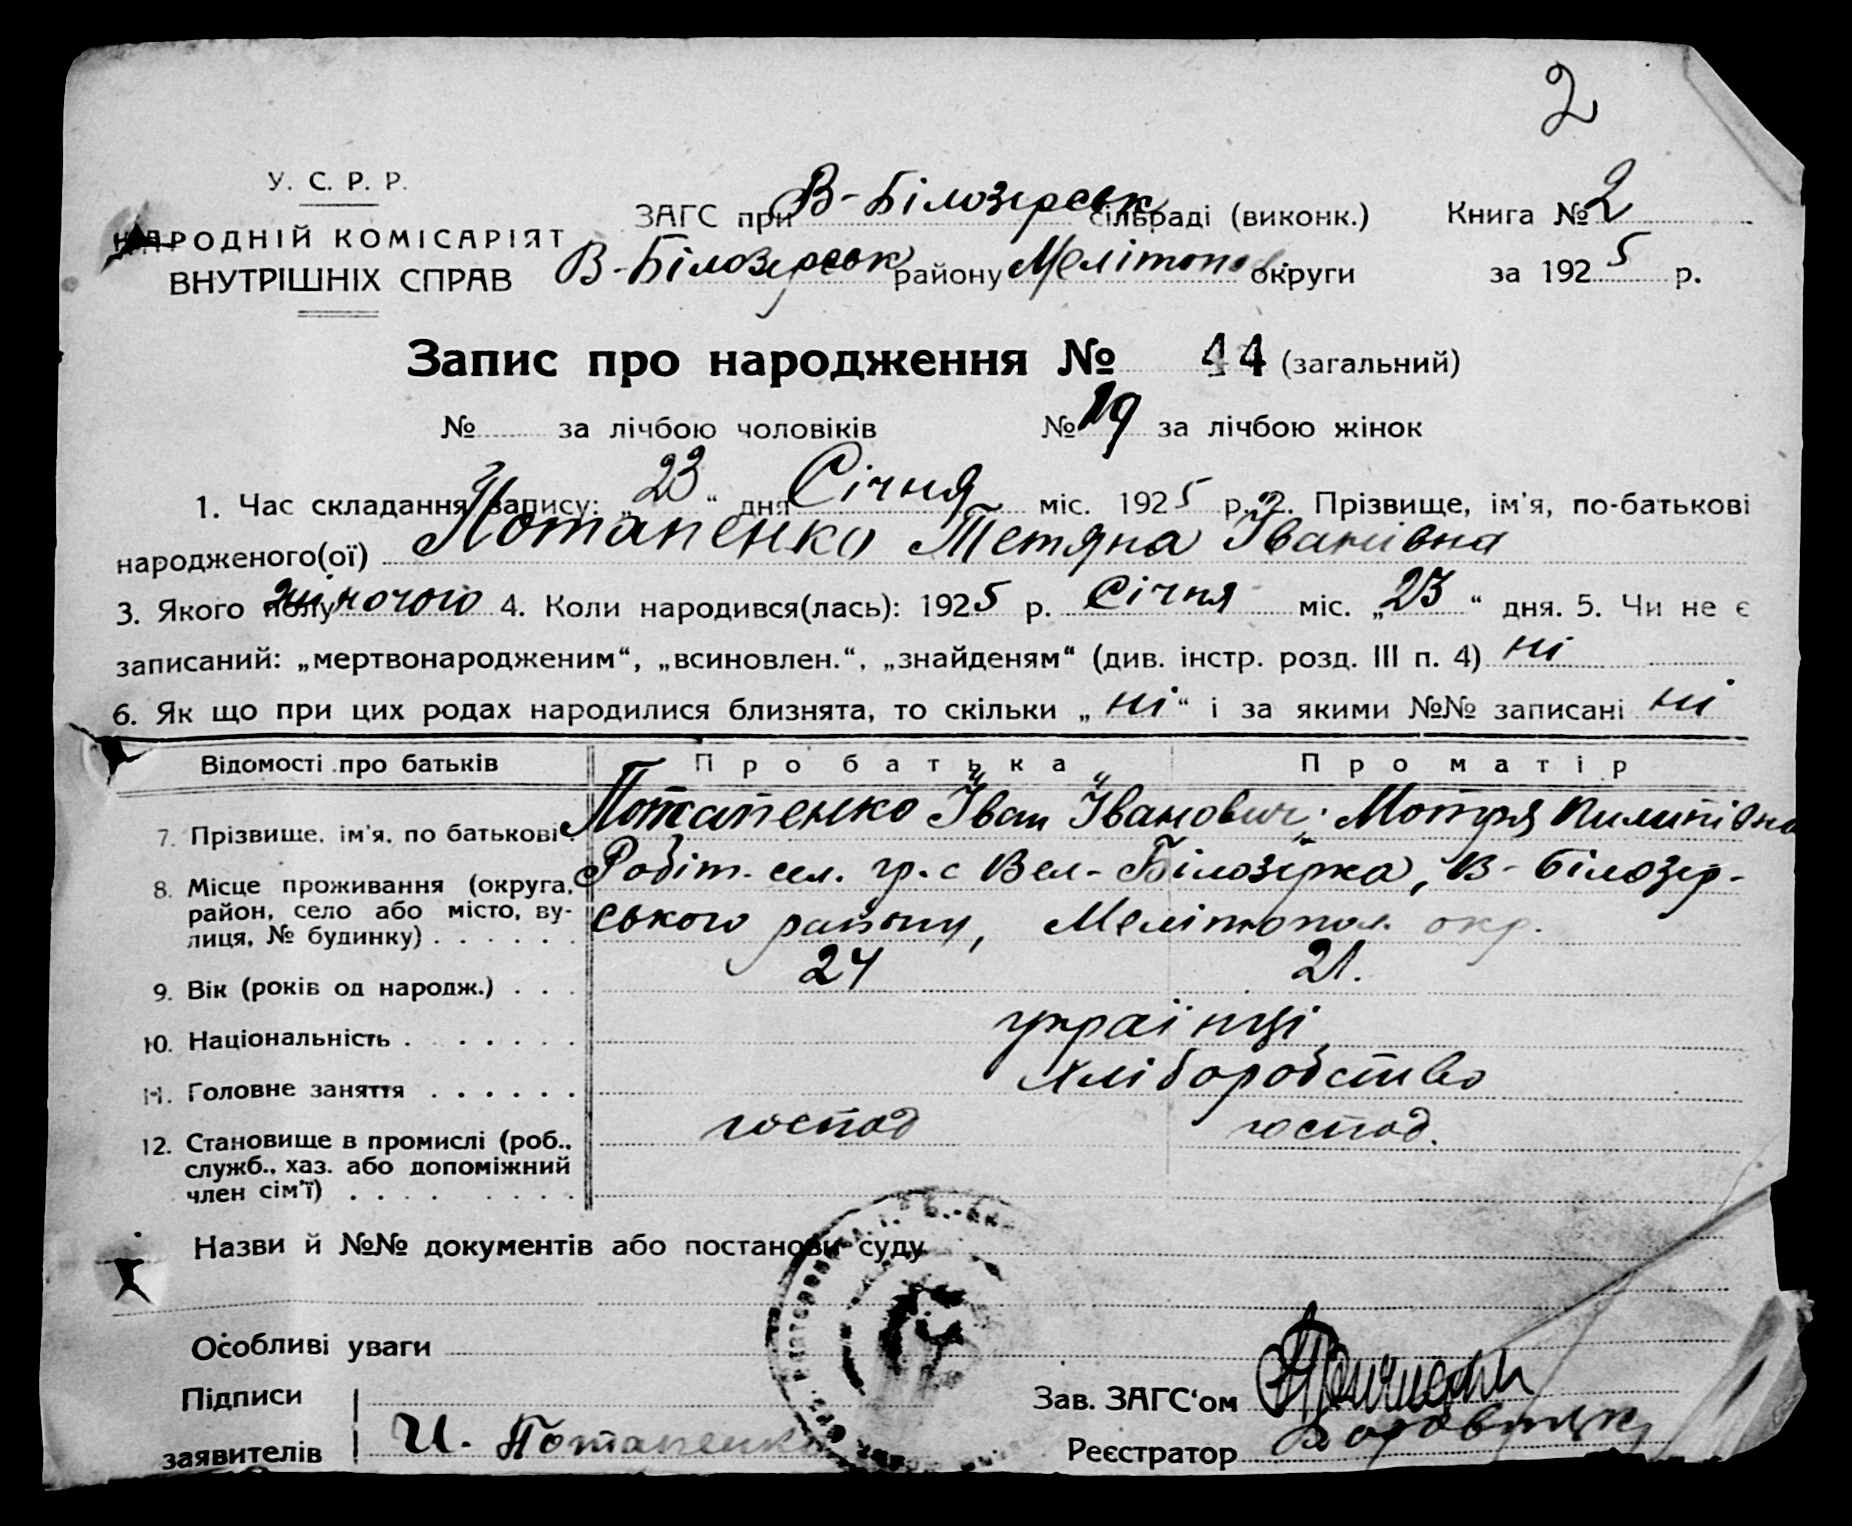 2
У. С. Р. Р.
НАРОДНІЙ КОМІСАРІЯТ
ВНУТРІШНІХ СПРАВ
ЗАГС при В-Білозерськ сільраді (виконк.)
Книга № 2
В-Білозерськ району Мелітоп округи
за 1925 р.
Запис про народження № 44 (загальний)
№ за лічбою чоловіків № 19 за лічбою жінок
1. Час складання запису: „23“ дня Січня міс. 1925 р. 2. Прізвище, ім'я, по-батькові
народженого(ої) Потапенко Тетяна Іванівна
3. Якого полу жіночого 4. Коли народився(лась): 1925 р. Січня міс. „23“ дня. 5. Чи не є
записаний: „мертвонародженим“, „всиновлен.“, „знайденям“ (див. інстр. розд. III п. 4) ні
6. Як що при цих родах народилися близнята, то скільки „ні“ і за якими №№ записані ні
Відомості про батьків Про батька Про матір
7. Прізвище, ім'я, по батькові. Потапенко Іван Іванович; Мотря Пилипівна
8. Місце проживання (округа, район, село або місто, вулиця, № будинку) Робіт. сел. гр. с Вел-Білозірка, В-Білозер-
ського району, Мелітопол. окр.
9. Вік (років од народж.) 24 21.
10. Національність українці
11. Головне заняття Хліборобство
12. Становище в промислі (роб., служб., хаз. або допоміжний член сім'ї) господ господ.
Назви й №№ документів або постанови суду
Особливі уваги
Підписи
заявителів И. Потапенко
Зав. ЗАГС‘ом
Реєстратор